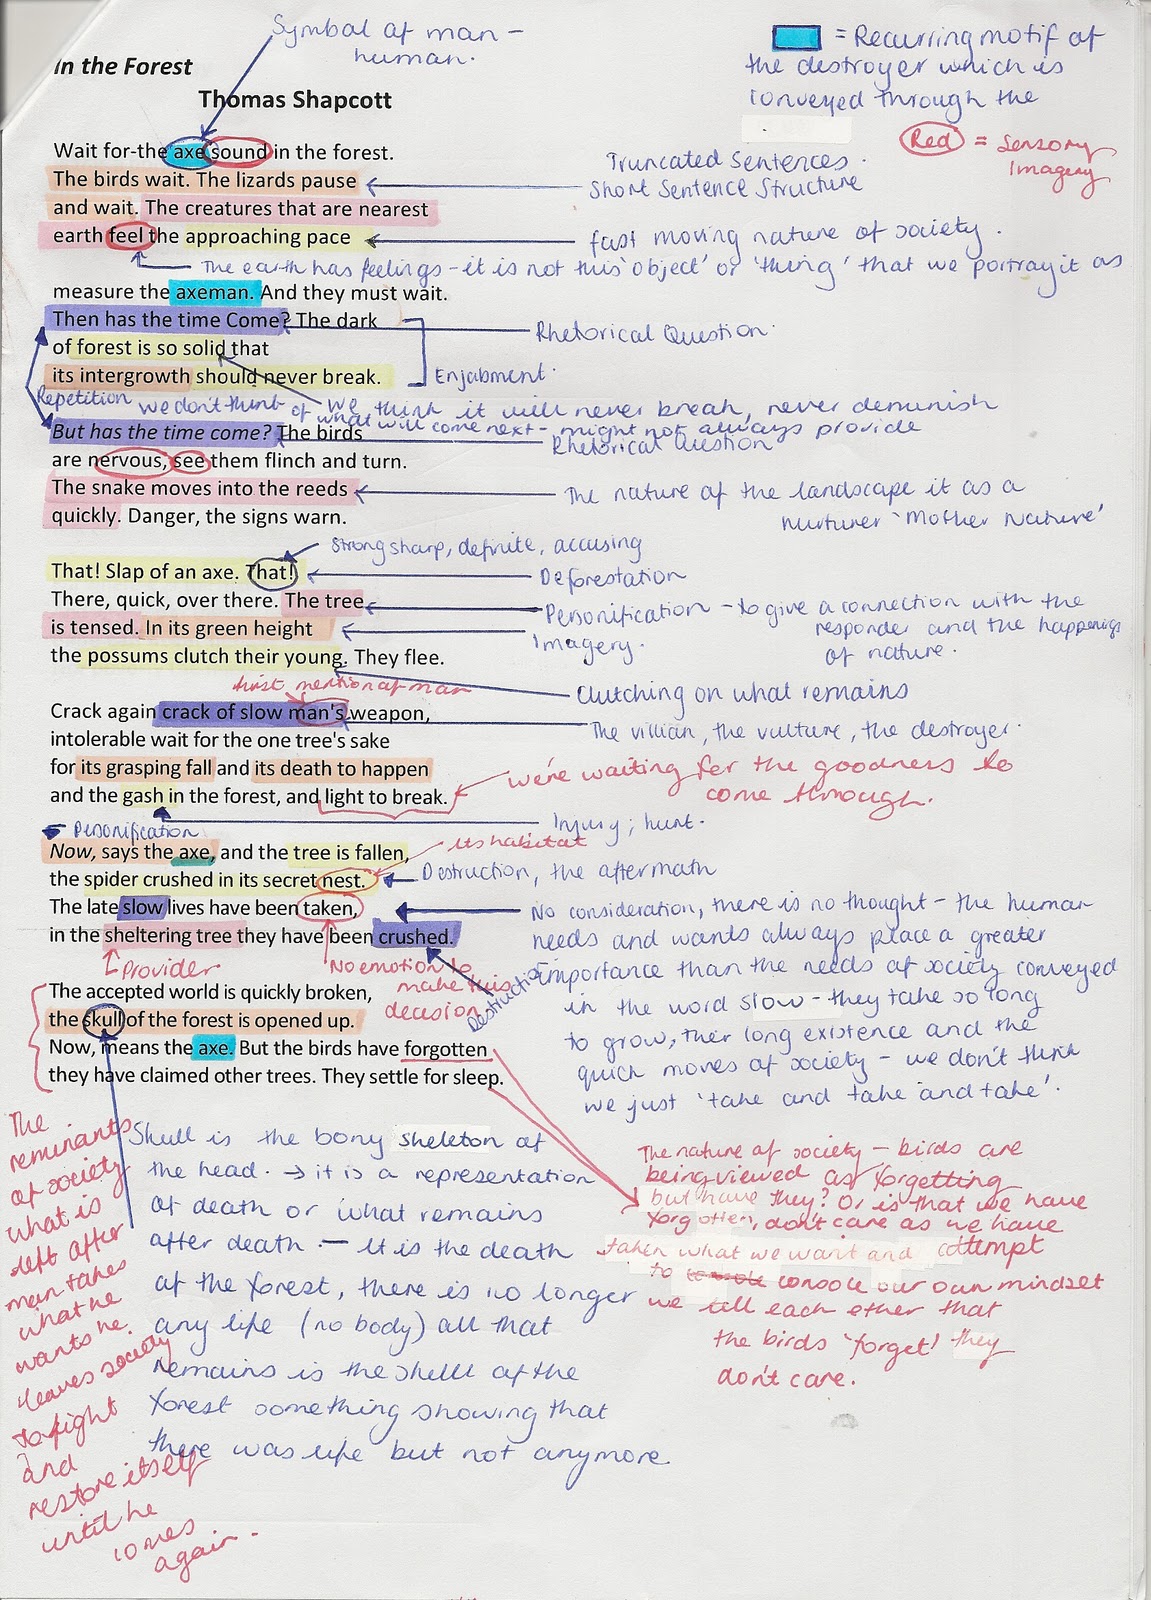 Symbol of man -
human.
= Recurring motif of
the destroyer which is
conveyed through the
Red = sensory
imagery
In the Forest
Thomas Shapcott
Wait for the axe sound in the forest.
The birds wait. The lizards pause
and wait. The creatures that are nearest
earth feel the approaching pace
Truncated Sentences.
Short Sentence Structure
fast moving nature of society.
The earth has feelings - it is not this 'object' or 'thing' that we portray it as
measure the axeman. And they must wait.
Then has the time Come? The dark
of forest is so solid that
its intergrowth should never break.
Rhetorical Question.
Enjabment.
Repetition
we think it will never break, never demunish
we don't think of what will come next - might not always provide
But has the time come? The birds
Rhetorical Question
are nervous, see them flinch and turn.
The snake moves into the reeds
quickly. Danger, the signs warn.
The nature of the landscape it as a
nurturer 'Mother Nature'
Strong sharp, definite, accusing
That! Slap of an axe. That!
Deforestation
There, quick, over there. The tree
is tensed. In its green height
the possums clutch their young. They flee.
Personification - to give a connection with the
responder and the happenings
of nature.
Imagery.
Clutching on what remains
first mention of man
Crack again crack of slow man's weapon,
intolerable wait for the one tree's sake
for its grasping fall and its death to happen
and the gash in the forest, and light to break.
The villian, the vulture, the destroyer.
we're waiting for the goodness to
come through.
Injury; hurt.
Personification
its habitat
Now, says the axe, and the tree is fallen,
the spider crushed in its secret nest.
Destruction, the aftermath
The late slow lives have been taken,
in the sheltering tree they have been crushed.
Provider
No emotion to
make this
decision
Destruction
No consideration, there is no thought - the human
needs and wants always place a greater
importance than the needs of society conveyed
in the word slow - they take so long
to grow, ther long existence and the
quick moves of society - we don't think
we just 'take and take and take'.
The accepted world is quickly broken,
the skull of the forest is opened up.
Now, means the axe. But the birds have forgotten
they have claimed other trees. They settle for sleep.
The
reminants
of society
what is
left after
man takes
what he
wants he
leaves society
to fight
and
restore itself
until he
comes
again.
Skull is the bony skeleton of
the head. → it is a representation
of death or what remains
after death. - It is the death
of the forest, there is no longer
any life (no body) all that
remains is the skelll of the
forest something showing that
there was life but not anymore.
The nature of society - birds are
being viewed as forgetting
but have they? Or is that we have
forgotten, don't care as we have
taken what we want and attempt
to console our own mindset
we tell each other that
the birds 'forget' they
don't care.